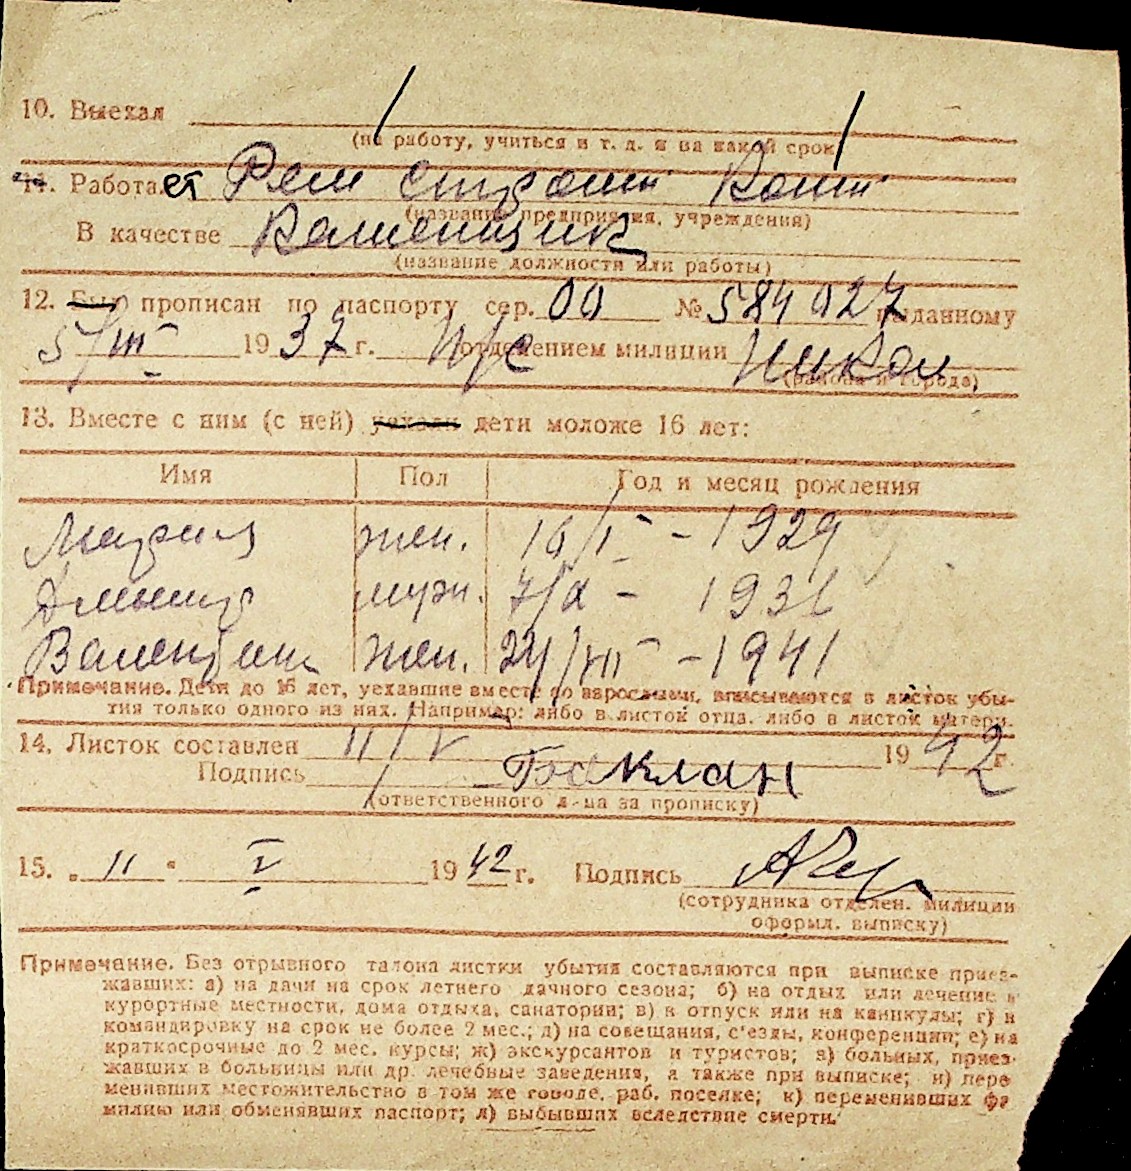 10. Выехал
(на работу, учиться и т. д. и на какой срок)
11. Работает Рем строит. Конт.
(название предприятия, учреждения)
В качестве Каменщик
(название должности или работы)
12. Был прописан по паспорту сер. № 584027 выданному
5/III 1937 г. Н/С отделением милиции
(района и города)
13. Вместе с ним (с ней) уехали дети моложе 16 лет:
Имя Пол Год и месяц рождения
Мария жен. 16/I - 1929
муж. 7/X - 1931
Валентина жен. 24/VII - 1941
Примечание. Дети до 16 лет, уехавшие вместе со взрослыми, вписываются в листок убы-
тия только одного из них. Например: либо в листок отца, либо в листок матери.
14. Листок составлен 11/V 1942 г.
Подпись Баклан
(ответственного л-ца за прописку)
15. „ 11 “ V 1942 г. Подпись
(сотрудника отделен. милиции
оформл. выписку)
Примечание. Без отрывного талона листки убытия составляются при выписке приез-
жавших: а) на дачи на срок летнего дачного сезона; б) на отдых или лечение в
курортные местности, дома отдыха, санатории; в) в отпуск или на каникулы; г) в
командировку на срок не более 2 мес.; д) на совещания, с'езды, конференции; е) на
краткосрочные до 2 мес. курсы; ж) экскурсантов и туристов; з) больных, приез-
жавших в больницы или др. лечебные заведения, а также при выписке; и) пере
менивших местожительство в том же городе, раб. поселке; к) переменивших фа
милию или обменявших паспорт; л) выбывших вследствие смерти.